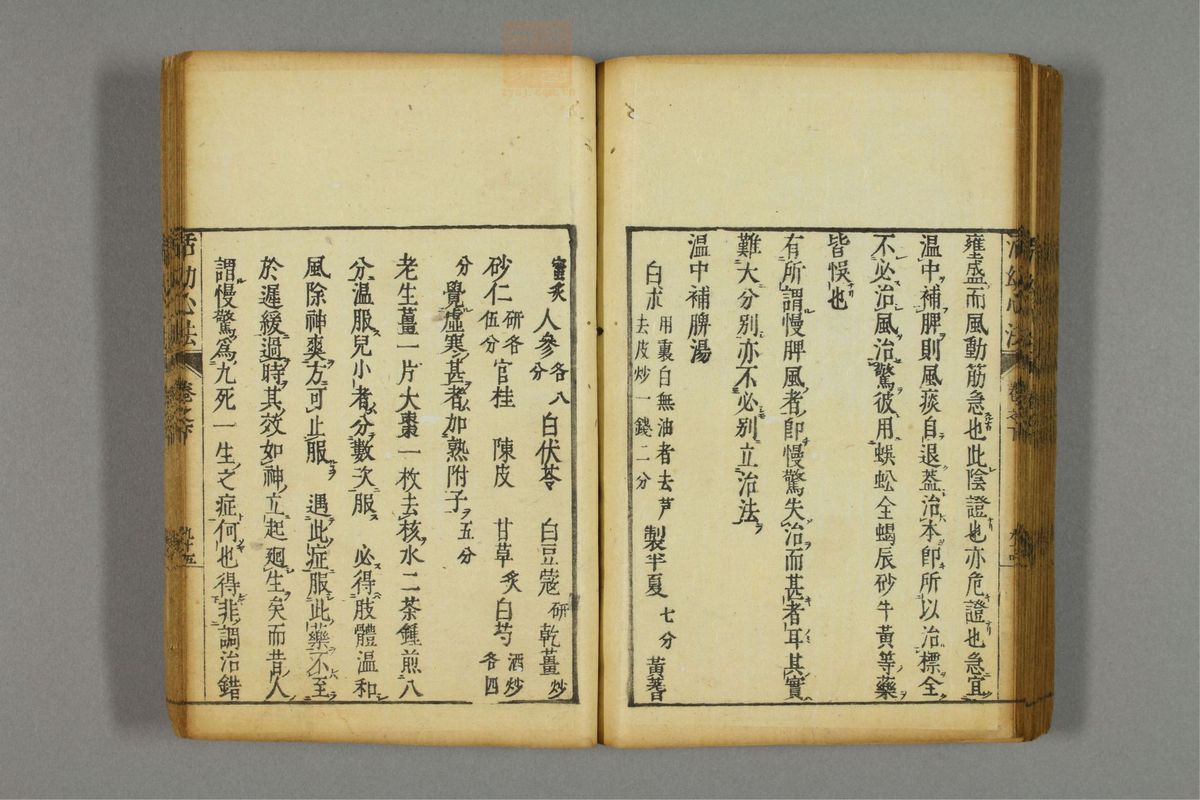 雍盛而風動筋急也此陰證也亦危證也急宜
溫中補脾則風痰自退蓋治本即所以治標全
不必治風治驚彼用蜈蚣全蝎辰砂牛黃等藥
皆悞也
有所謂慢脾風者即慢驚失治而甚者耳其實
難大分別亦不必別立治法
溫中補脾湯
白朮用裏白無油者去芦去皮炒一錢二分 製半夏七分 黃蓍
蜜炙 人參各八分 白伏苓 白豆蔻研 乾薑炒
砂仁研各伍分 官桂 陳皮 甘草炙 白芍酒炒各四
分 覺虛寒甚者加熟附子五分
老生薑一片大棗一枚去核水二茶鍾煎八
分溫服兒小者分數次服 必得肢體溫和
風除神爽方可止服 遇此症服此藥不至
於遲緩過時其效如神立起廻生矣而昔人
謂慢驚爲九死一生之症何也得非調治錯
活幼心法
卷之下